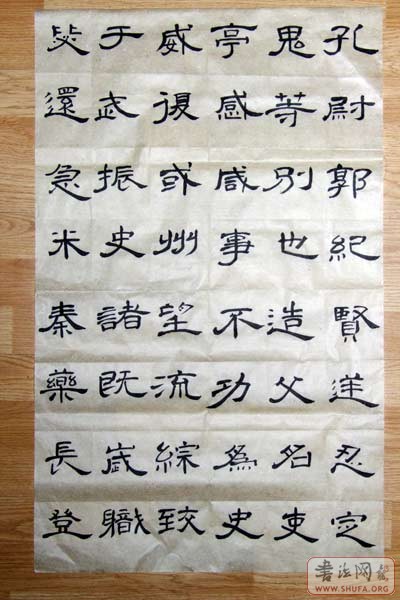 孔尉郭紀賢逆忍定
鬼等別也造父名吏
亭感咸事不功為史
威復或州望流綜致
于武振史諸既歲職
還急术秦藥長登
書法网
WWW.SHUFA.ORG